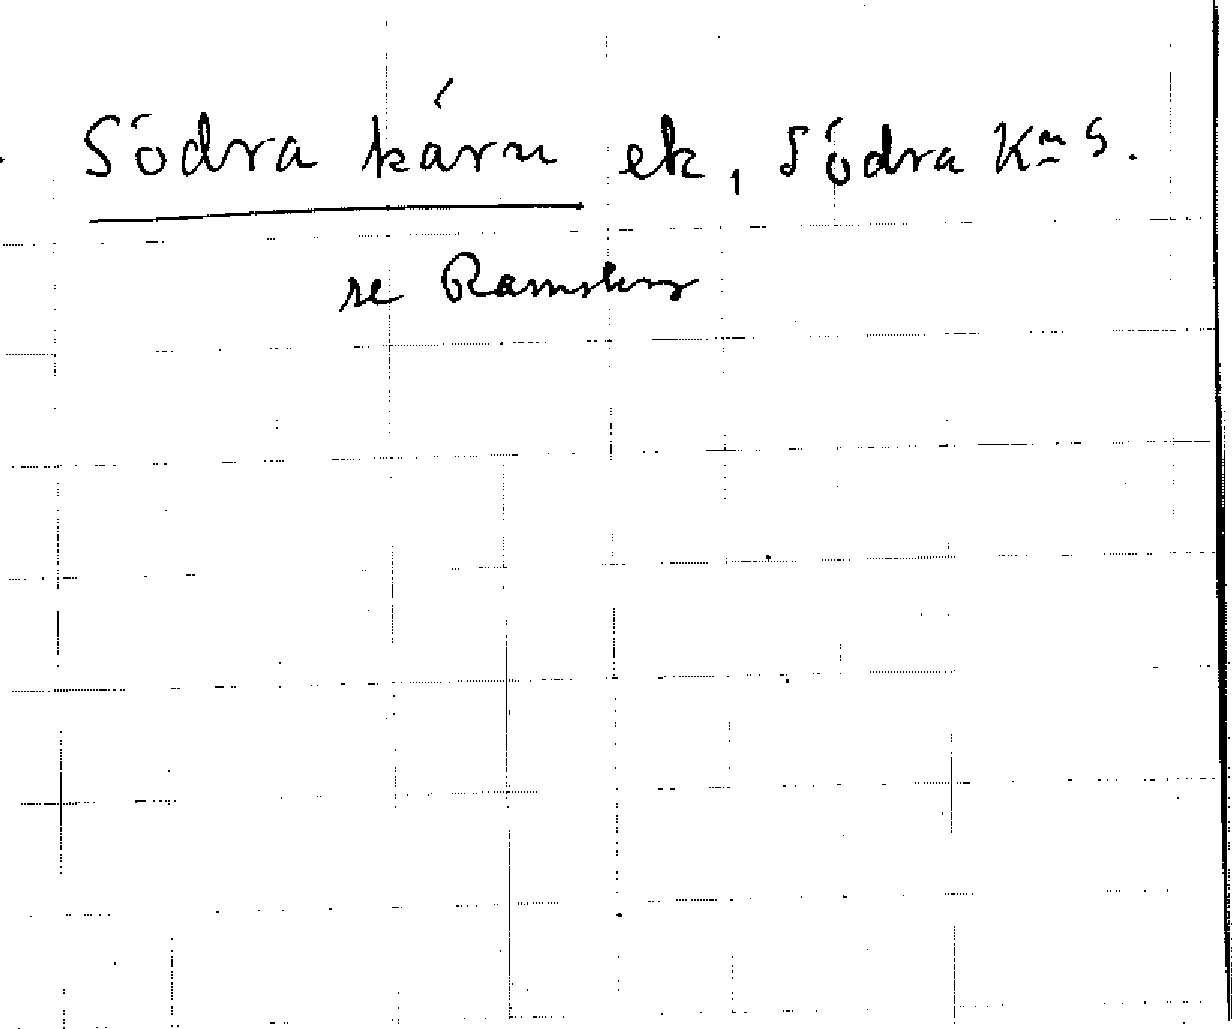 Södra kärn ek, Södra Kⁿ S.
se Ramsberg